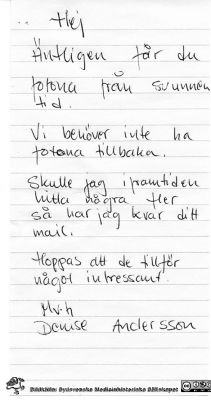 Hej
Äntligen får du
fotona från svunnen
tid.
Vi behöver inte ha
fotona tillbaka.
Skulle jag i framtiden
hitta några fler
så har jag kvar ditt
mail.
Hoppas att de tillför
något intressant.
Mvh
Denise Andersson
Bildkälla: Sydsvenska Medicinhistoriska Sällskapet